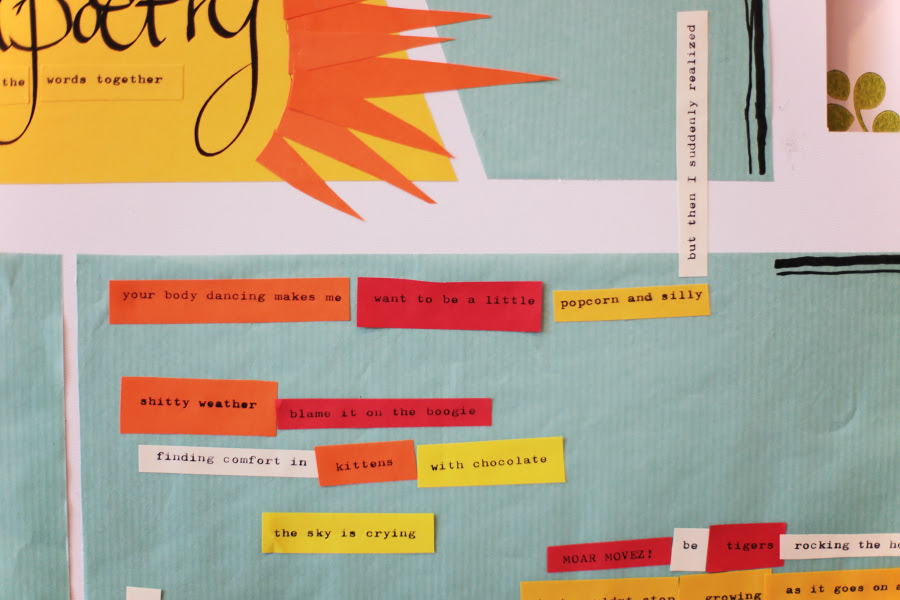 poetry
the words together
but then I suddenly realized
your body dancing makes me want to be a little popcorn and silly
shitty weather blame it on the boogie
finding comfort in kittens with chocolate
the sky is crying
MOAR MOVEZ! be tigers rocking the
stop growing as it goes on